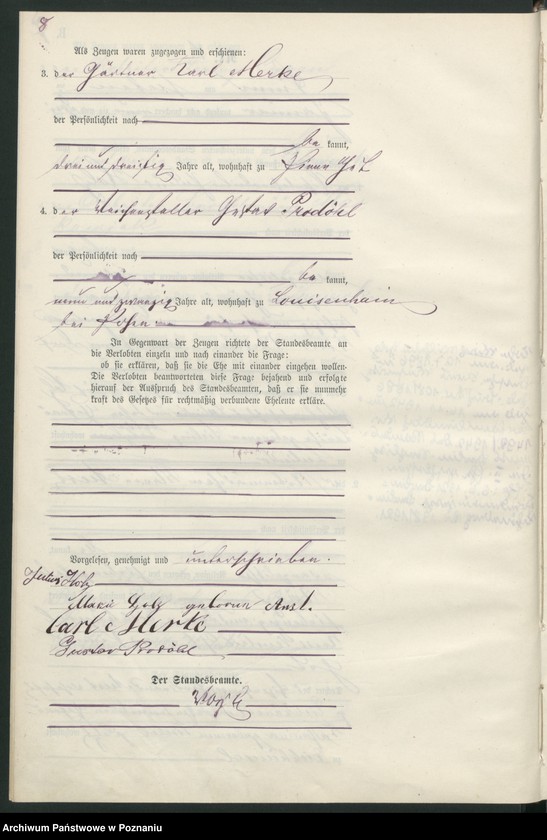 8
Als Zeugen waren zugezogen und erschienen:
3. der Gärtner Karl Merke
der Persönlichkeit nach
be kannt,
drei und dreißig Jahre alt, wohnhaft zu
4. der Weichensteller Gustav Prodöhl
der Persönlichkeit nach
be kannt,
neun und zwanzig Jahre alt, wohnhaft zu Louisenhain
bei Posen
In Gegenwart der Zeugen richtete der Standesbeamte an
die Verlobten einzeln und nach einander die Frage:
ob sie erklären, daß sie die Ehe mit einander eingehen wollen.
Die Verlobten beantworteten diese Frage bejahend und erfolgte
hierauf der Ausspruch des Standesbeamten, daß er sie nunmehr
kraft des Gesetzes für rechtmäßig verbundene Eheleute erkläre.
Vorgelesen, genehmigt und unterschrieben.
Julius Holz
Marie Holz geborene
Carl Merke
Gustav Prodöhl
Der Standesbeamte.
Archiwum Państwowe w Poznaniu